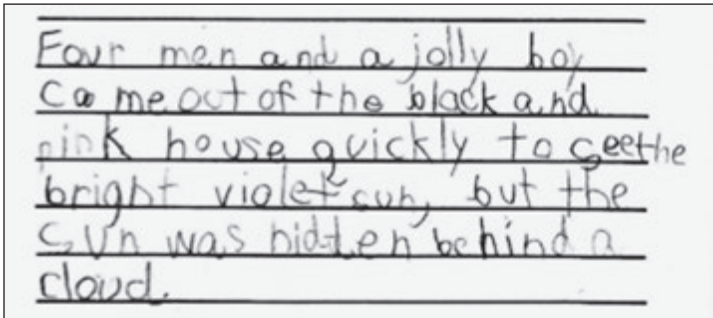 Four men and a jolly boy
Came out of the black and
pink house quickly to see the
bright violet sun, but the
sun was hidden behind a
cloud.